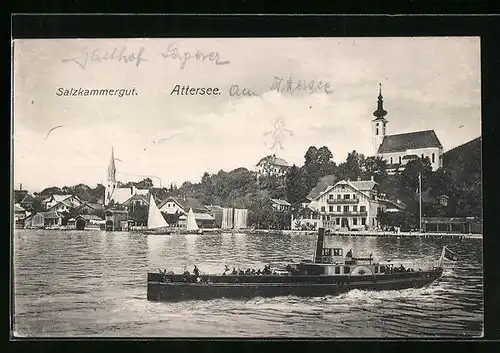 Gasthof
Am Attersee
Salzkammergut. Attersee.